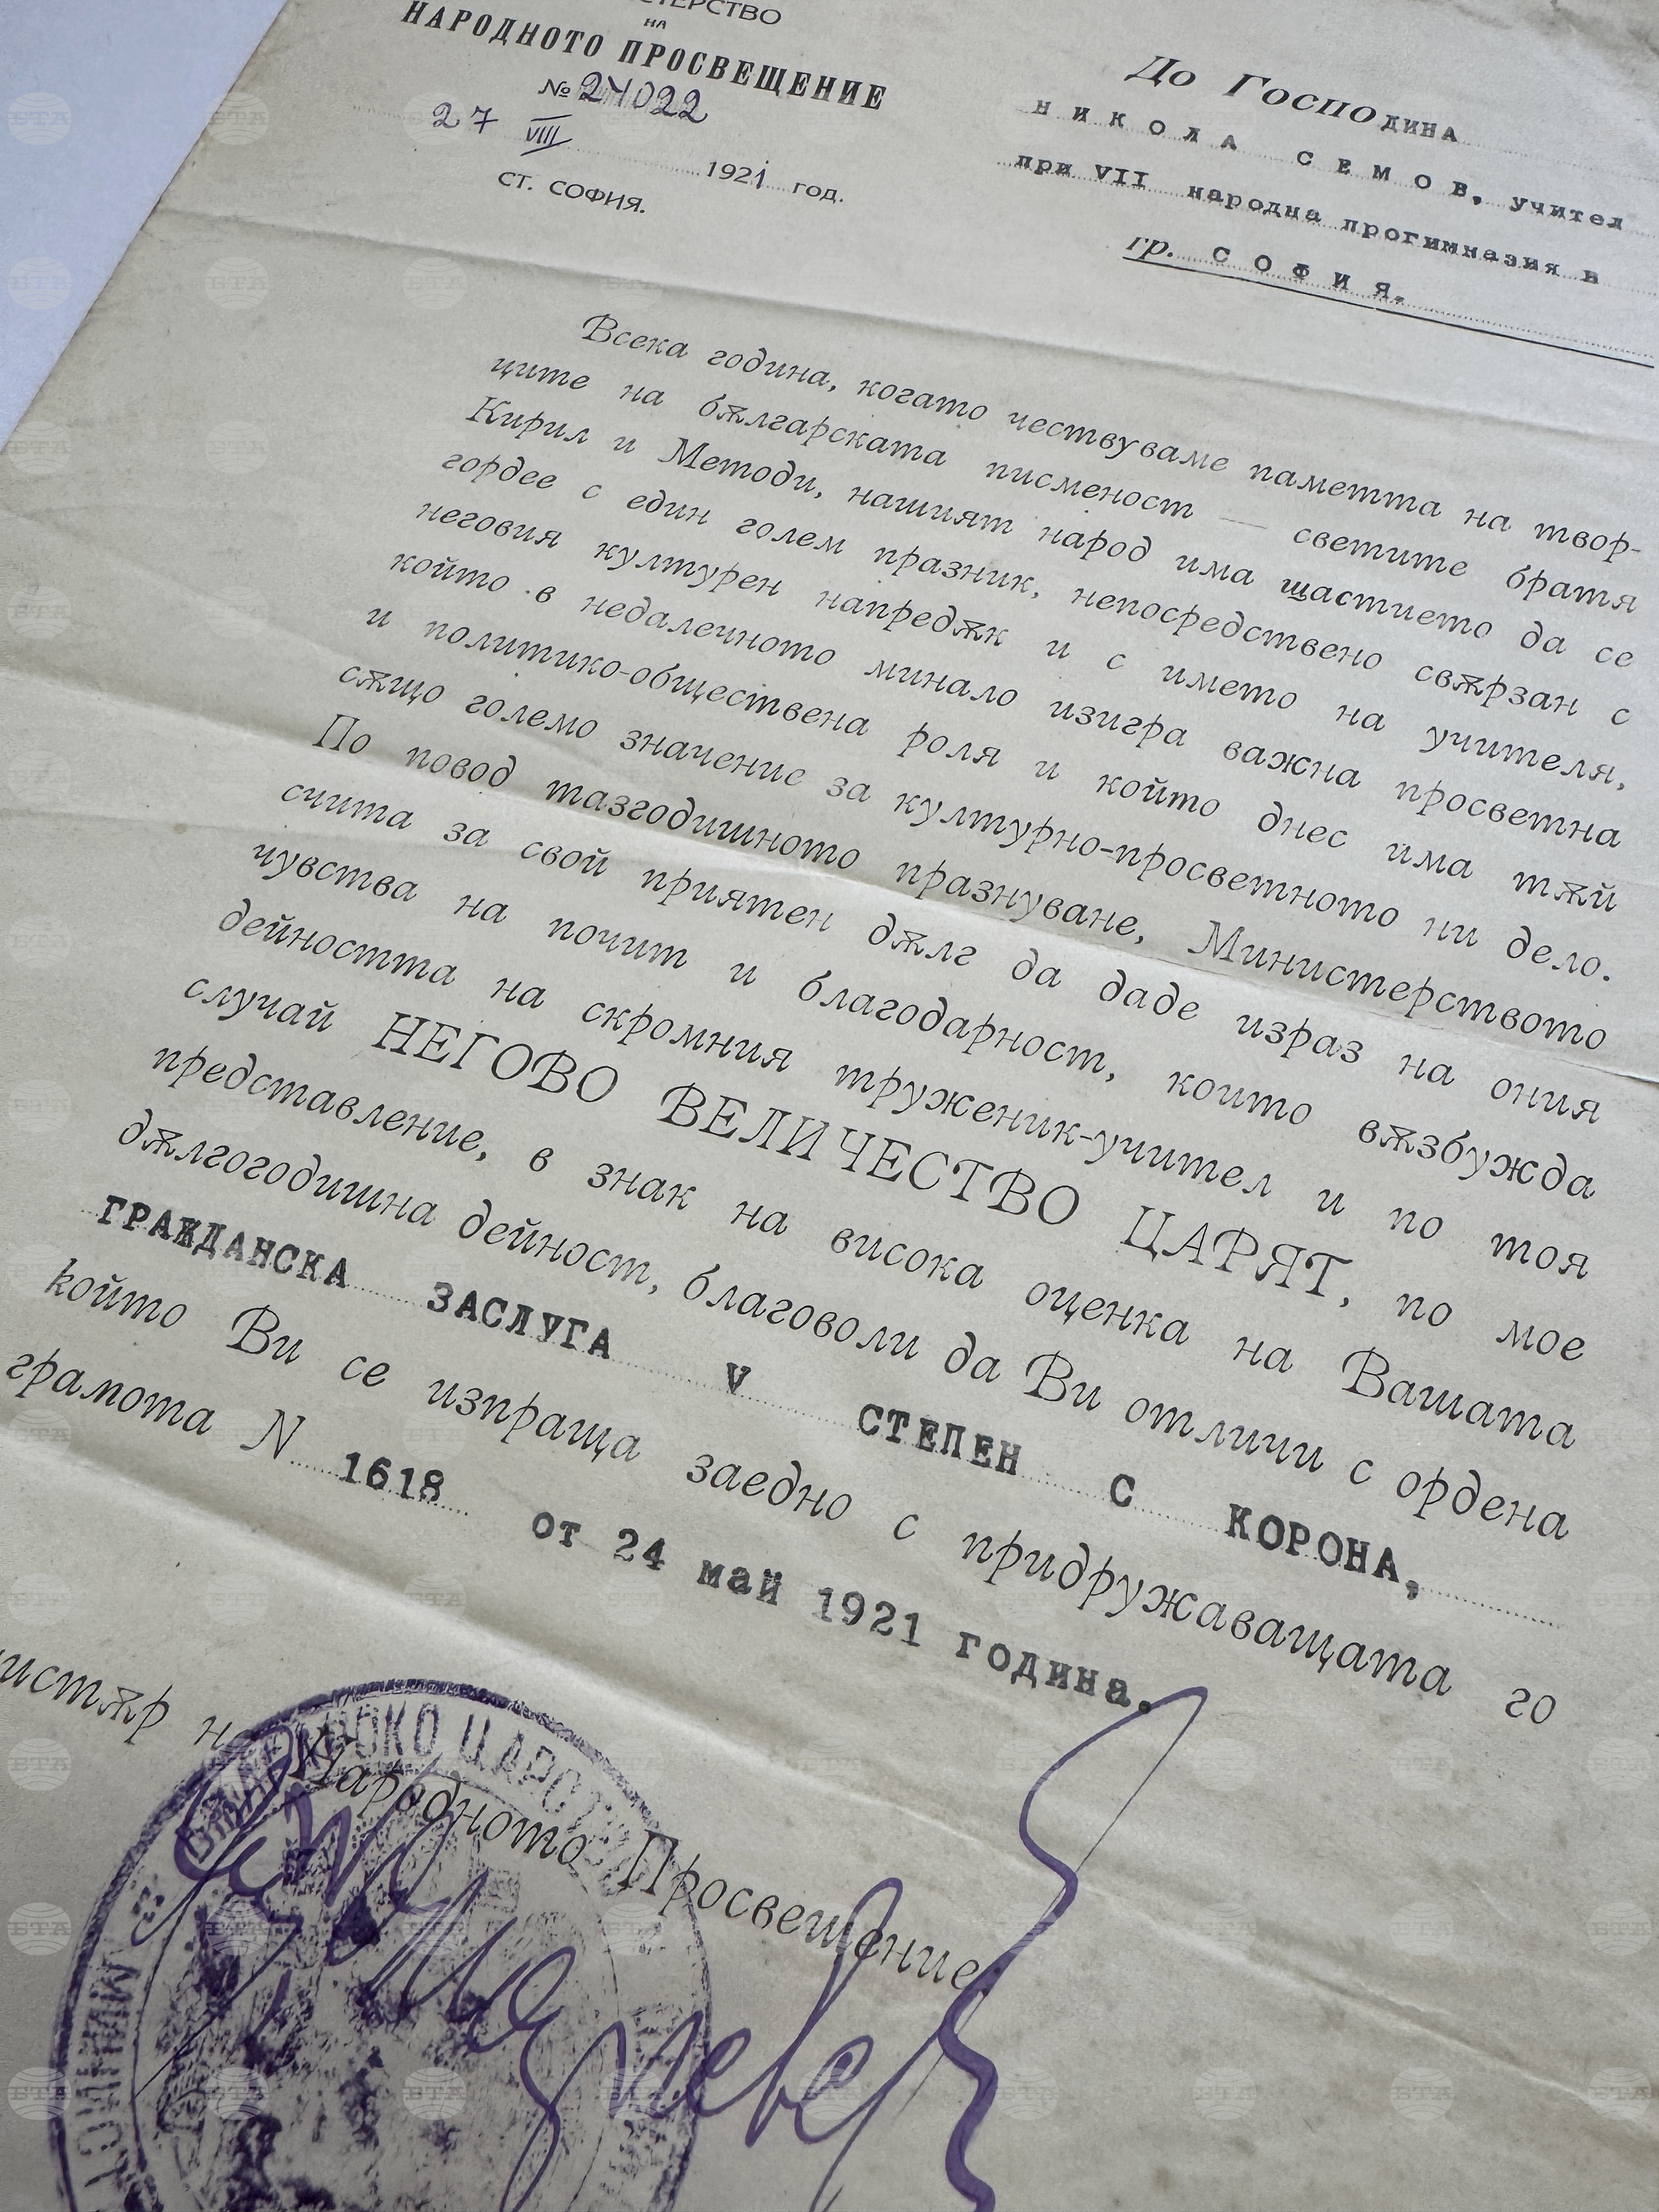 НАРОДНОТО ПРОСВЕЩЕНИЕ
НА
№ 24022
27 VIII 1921 год.
СТ. СОФИЯ.
До Господина
НИКОЛА СЕМОВ, учител
при VII народна прогимназия в
гр. СОФИЯ.
Всека година, когато чествуваме паметта на твор-
ците на бѫлгарската писменост — светите братя
Кирил и Методи, нашият народ има щастието да се
гордее с един голем празник, непосредствено свѫрзан с
неговия културен напредѫк и с името на учителя,
който в недалечното минало изигра важна просветна
и политико-обществена роля и който днес има тѫй
сѫщо големо значение за културно-просветното ни дело.
По повод тазгодишното празнуване, Министерството
счита за свой приятен дѫлг да даде израз на ония
чувства на почит и благодарност, които вѫзбужда
дейността на скромния труженик-учител и по тоя
случай НЕГОВО ВЕЛИЧЕСТВО ЦАРЯТ, по мое
представление, в знак на висока оценка на Вашата
дѫлгогодишна дейност, благоволи да Ви отличи с ордена
ГРАЖДАНСКА ЗАСЛУГА V СТЕПЕН С КОРОНА,
който Ви се изпраща заедно с придружаващата го
грамота N 1618 от 24 май 1921 година.
на Народното Просвещение
ЦАРСТВО
БТА